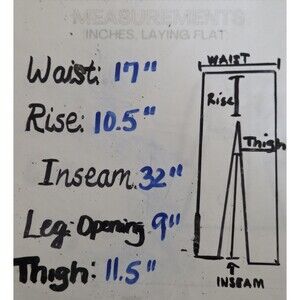 MEASUREMENTS
INCHES, LAYING FLAT
Waist: 17"
Rise: 10.5"
Inseam. 32"
Leg: Opening 9"
Thigh: 11.5"
WAIST
Rise
Thigh
INSEAM